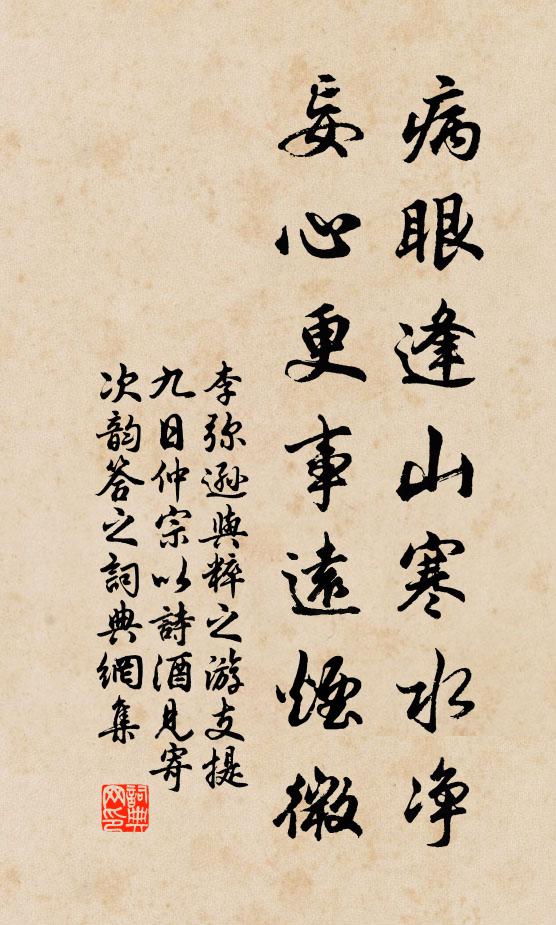 病眼逢山寒水净
妄心更事遠煙微
李弥遜與粹之游支提
九日仲宗以詩酒見寄
次韵答之詞典網集
詞典網印